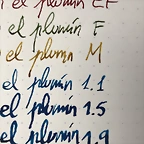 el plumín EF
el plumín F
el plumín M
el plumín 1.1
el plumín 1.5
el plumín 1.9